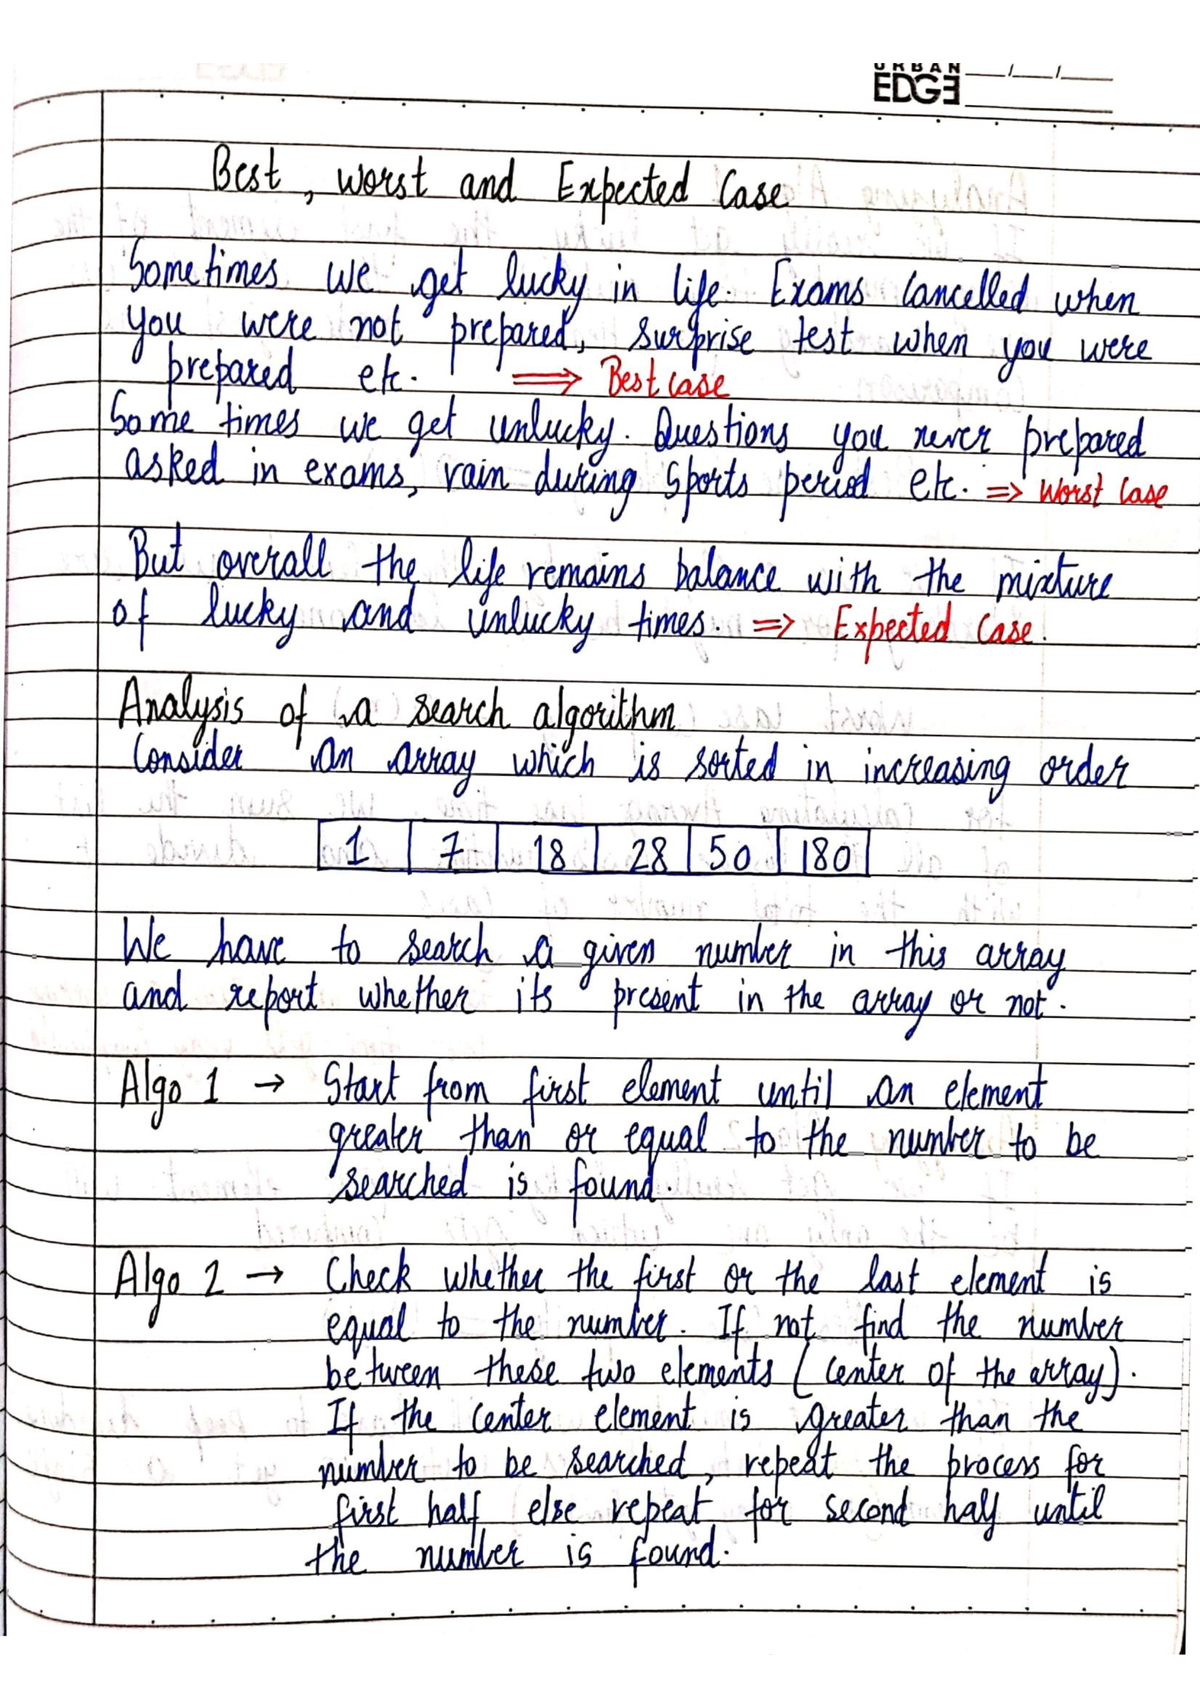 URBAN
EDGE
Best, worst and Expected Case
Sometimes we get lucky in life. Exams Cancelled when
you were not prepared, surprise test when you were
prepared etc. ⟹ Best case
Some times we get unlucky. Questions you never prepared
asked in exams, rain during Sports period etc. => Worst Case
But overall the life remains balance with the mixture
of lucky and unlucky times. => Expected Case.
Analysis of a search algorithm
Consider an array which is sorted in increasing order
1 7 18 28 50 180
We have to search a given number in this array
and report whether its present in the array or not.
Algo 1 → Start from first element until an element
greater than or equal to the number to be
searched is found.
Algo 2 → Check whether the first or the last element is
equal to the number. If not find the number
between these two elements (center of the array).
If the center element is greater than the
number to be searched, repeat the process for
first half else repeat for second half until
the number is found.